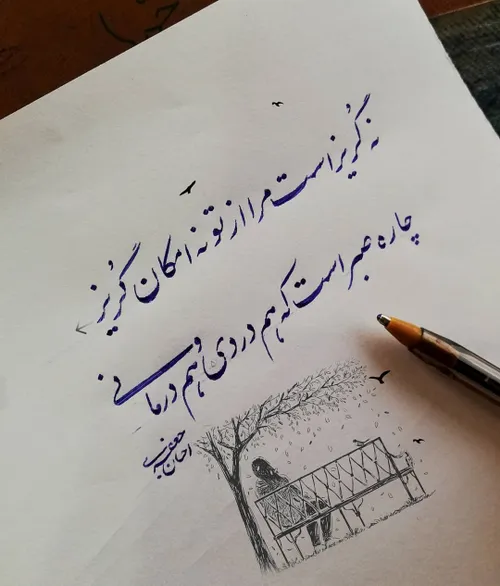 نه گُریز است مرا از تو نه امکان گُریز
چاره صبر است که هم دردی و هم درمانی